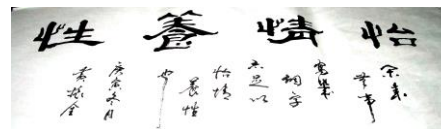 怡情養性
余素
無事
寫幾
個字
亦足以
怡情
養性
也
庚寅冬月